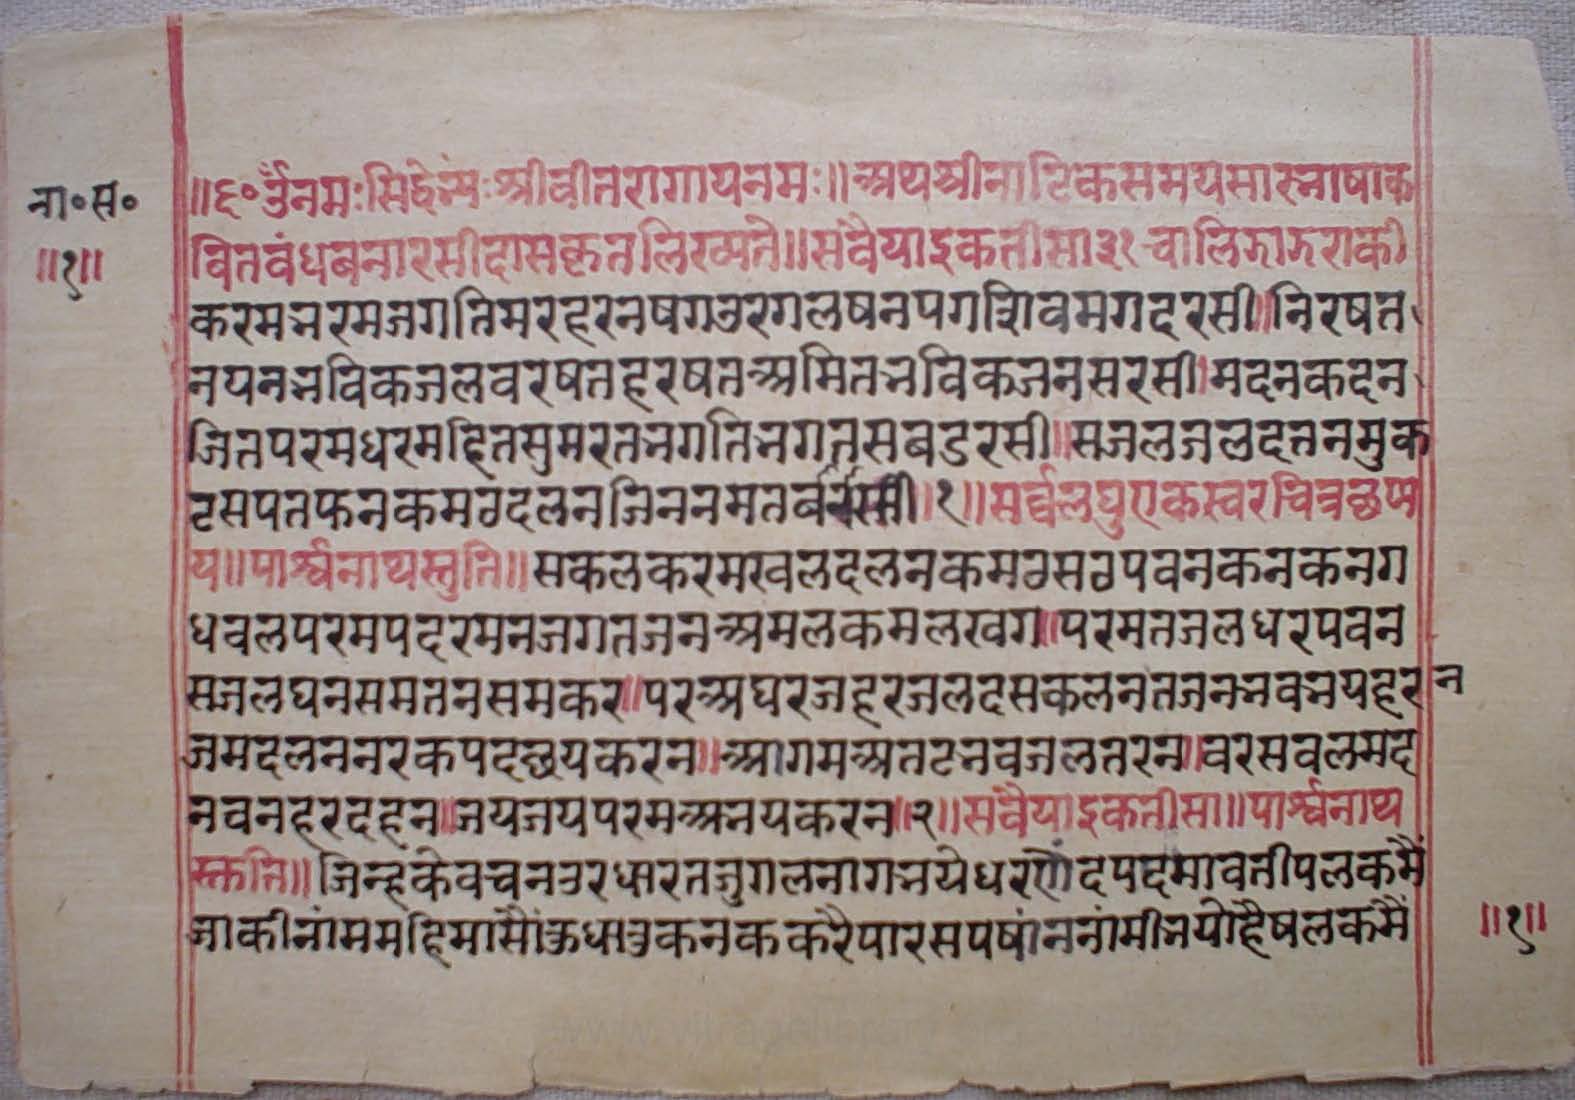 ना॰स॰
॥१॥
॥६॰॥ ॐनमः सिद्धेभ्यः श्रीवीतरागायनमः॥ अथश्रीनाटिकसमयसारभाषाक
वितवंधबनारसीदासकृतलिख्यते॥ सवैयाइकतीसा३१ चालिझाझराकी
करमभरमजगतिमरहरनषगउरगलषनपगशिवमगदरसी॥ निरषत
नयनभविकजलवरषतहरषतअमितभविकजनसरसी। मदनकदन
जितपरमधरमहितसुमरतभगतिभगतसबडरसी॥ सजलजलदतनमुक
टसपतफनकमठदलनजिननमतबनरसी॥१॥ सर्व्वलघुएकस्वरचित्रछप्प
य॥ पार्श्वनाथस्तुति॥ सकलकरमखलदलनकमठसठपवनकनकनग
धवलपरमपदरमनजगतजनअमलकमलखग॥ परमतजलधरपवन
सजलघनसमतनसमकर॥ परअघरजहरजलदसकलनतजनभवभयहर न
जमदलननरकपदछयकरन॥ अगमअतटभवजलतरन॥ वरसवलमद
नवनहरदहन॥ जयजयपरमअभयकरन॥२॥ सवैयाइकतीसा॥ पार्श्वनाथ
स्तुति॥ जिन्हकेवचनउरधारतजुगलनागभयेधरणेंदपदमावतीपलकमैं
जाकीनांममहिमासौंऊधाउकनककरैपारसपषांननांमीभयोहैषलकमैं
॥१॥